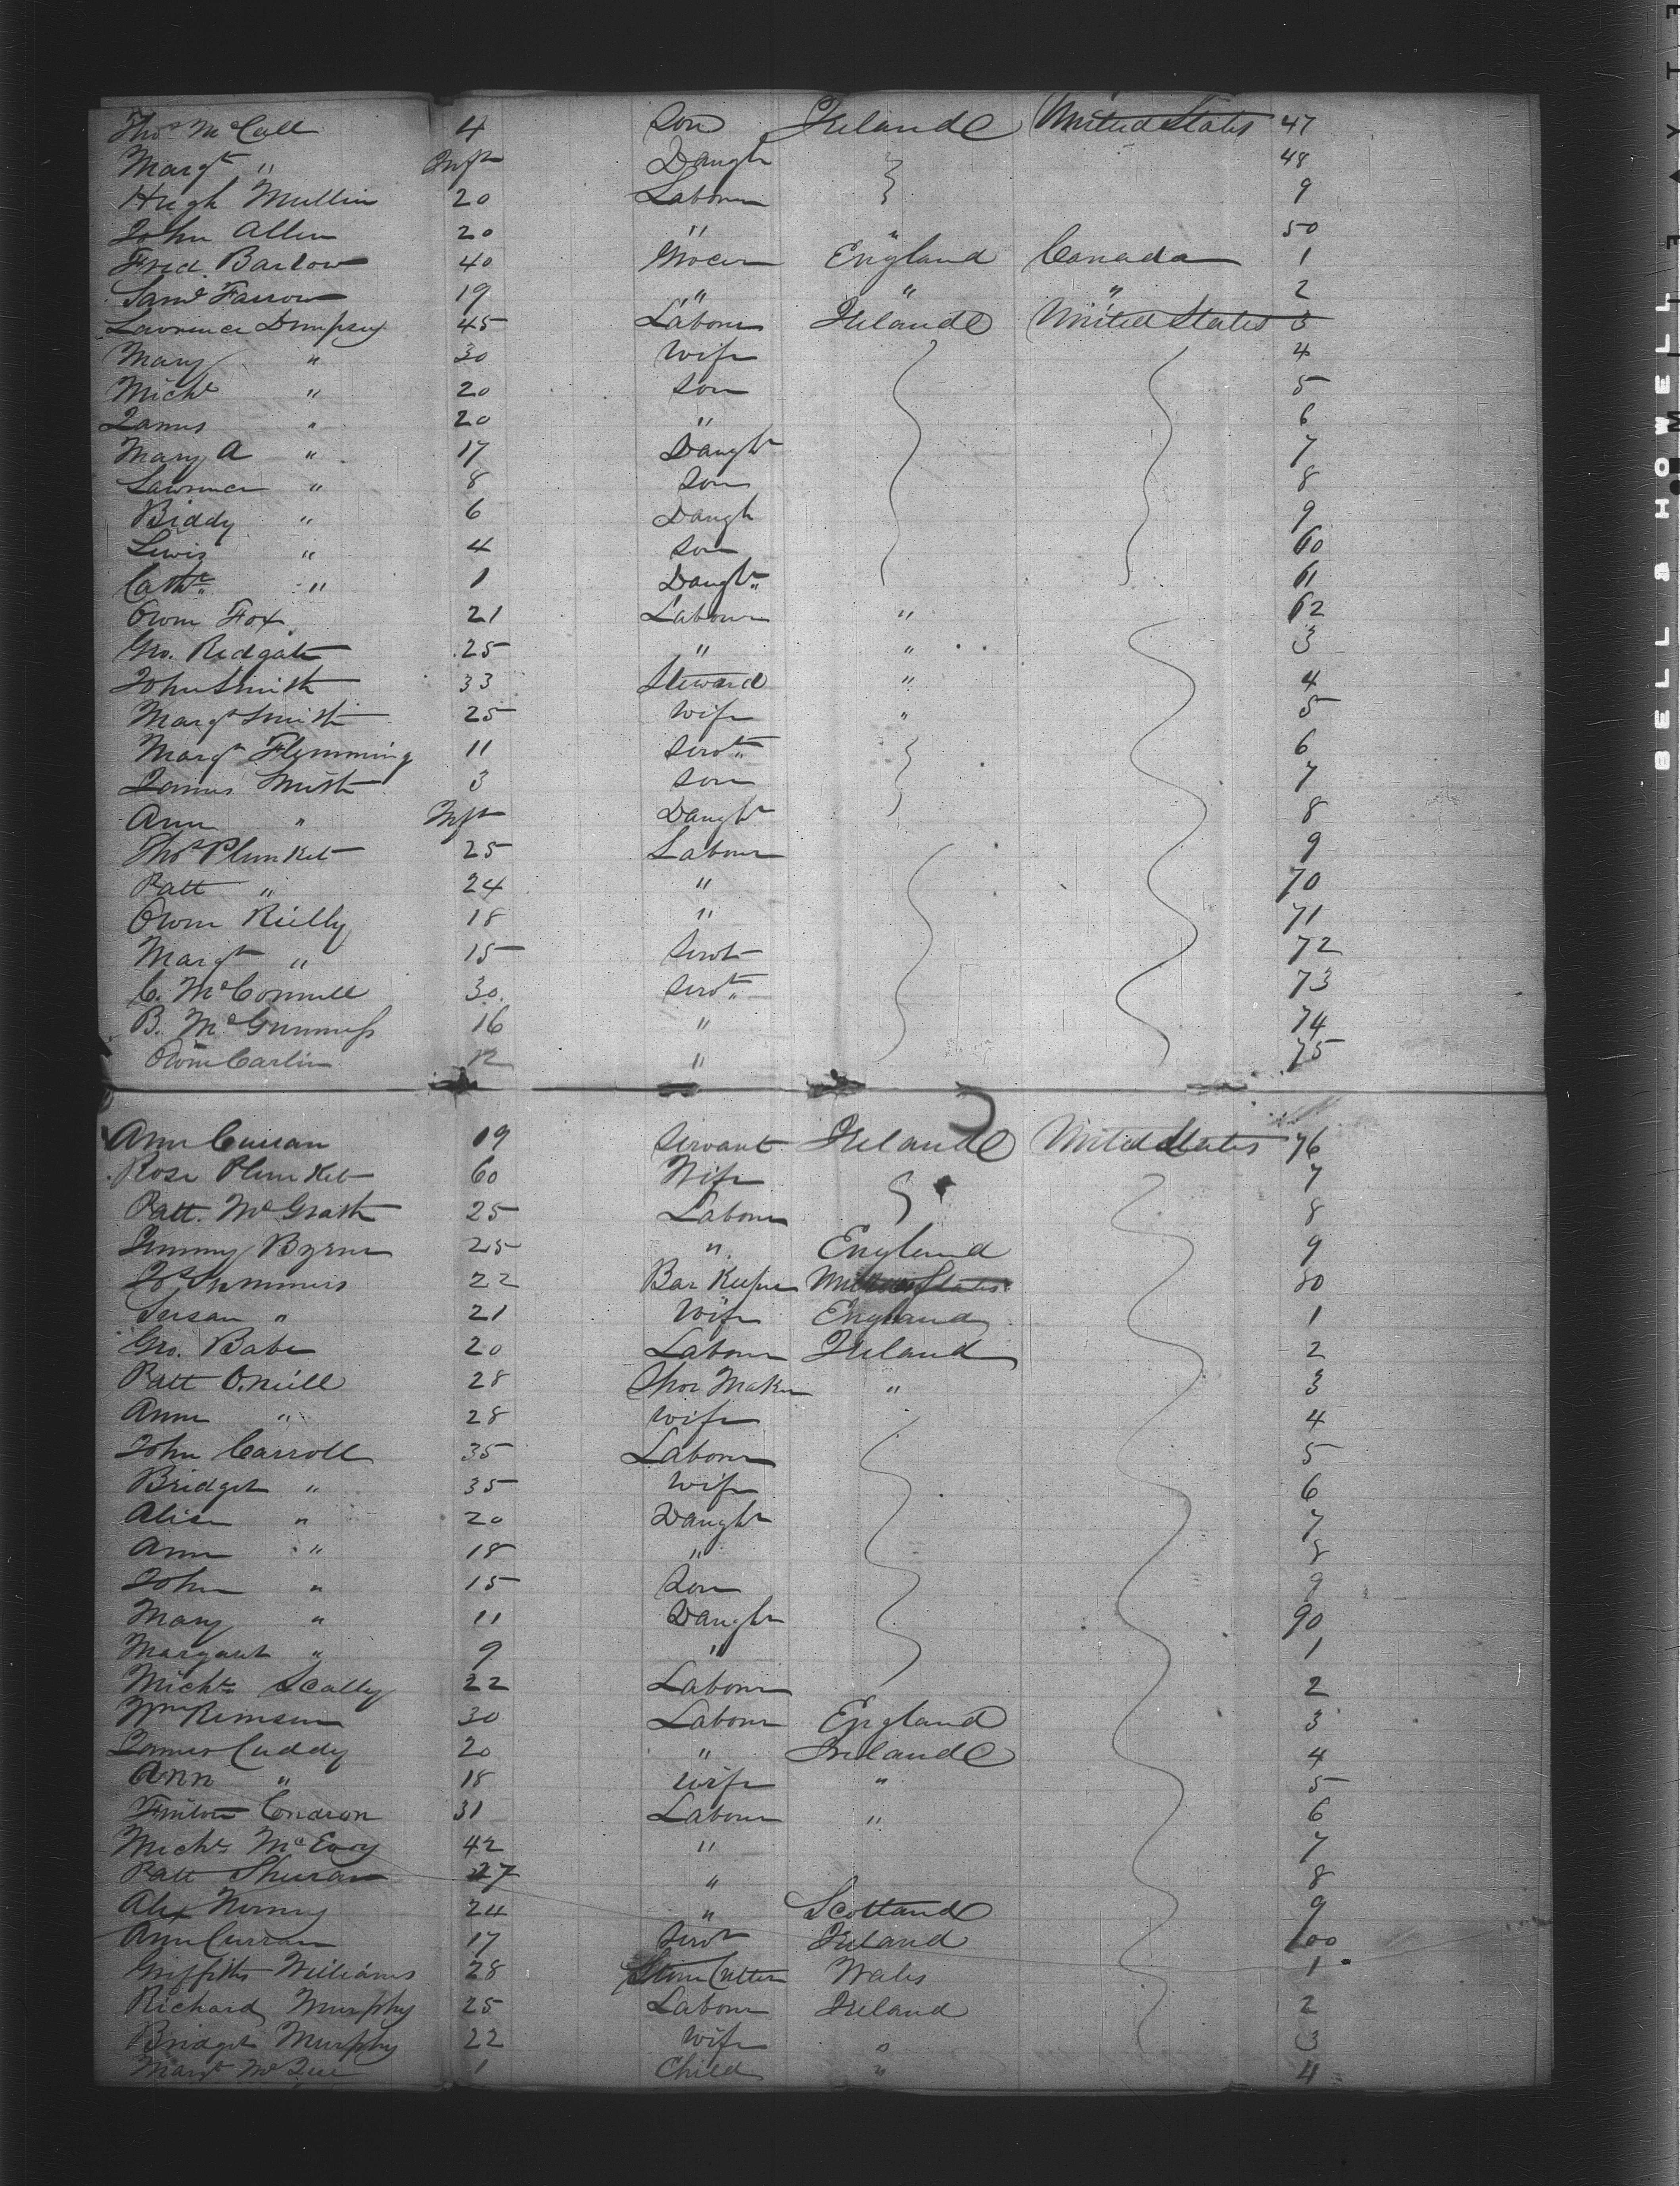 Thos McCall 4 Son Ireland United States 47
Margt " Inft Daugh 48
Hugh Mullin 20 Labourer 9
John Allen 20 " " 50
Fred. Barlow 40 Grocer England Canada 1
Saml Farrow 19 " " " 2
Lawrence Dempsey 45 Labourer Ireland United States 3
Mary " 30 Wife 4
Michl " 20 Son 5
James " 20 " 6
Mary A " 17 Daughr 7
Lawrence " 8 Son 8
Biddy " 6 Daugh 9
Lewis " 4 Son 60
Cathe " 1 Daughr 61
Owen Fox 21 Labourer " 62
Geo. Redgate 25 " " 3
John Smith 33 Steward " 4
Margt Smith 25 Wife " 5
Margt Flemming 11 Servt 6
James Smith 3 Son 7
Ann " Inft Daughr 8
Thos Plunket 25 Labourer 9
Patt " 24 " 70
Owen Rielly 18 " 71
Margt " 15 Servt 72
C. McConnell 30 Servt 73
B. McGunness 16 " 74
Owen Carlin 12 " 75
Ann Curran 19 Servant Ireland United States 76
Rose Plunket 60 Wife 7
Patt. McGrath 25 Labourer 8
Jimmy Byrne 25 " England 9
Jos Summers 22 Bar Keeper United States 80
Susan " 21 Wife England 1
Geo. Babe 20 Labourer Ireland 2
Patt O.Neill 28 Shoe Maker " 3
Ann " 28 Wife 4
John Carroll 35 Labourer 5
Bridget " 35 Wife 6
Alice " 20 Daughr 7
Ann " 18 " 8
John " 15 Son 9
Mary " 11 Daughr 90
Margaret " 9 " 1
Michl Scally 22 Labourer 2
Wm 30 Labourer England 3
James Cuddy 20 " Ireland 4
Ann " 18 Wife " 5
Finton Condron 31 Labourer " 6
Michl McEvoy 42 " 7
Patt 27 " 8
Alex 24 " Scotland 9
Ann Curran 17 Servt Ireland 100
Griffiths Williams 28 Stone Cutter Wales 1
Richard Murphy 25 Labourer Ireland 2
Bridget Murphy 22 Wife " 3
Margt 1 Child " 4
BELL & HOWELL